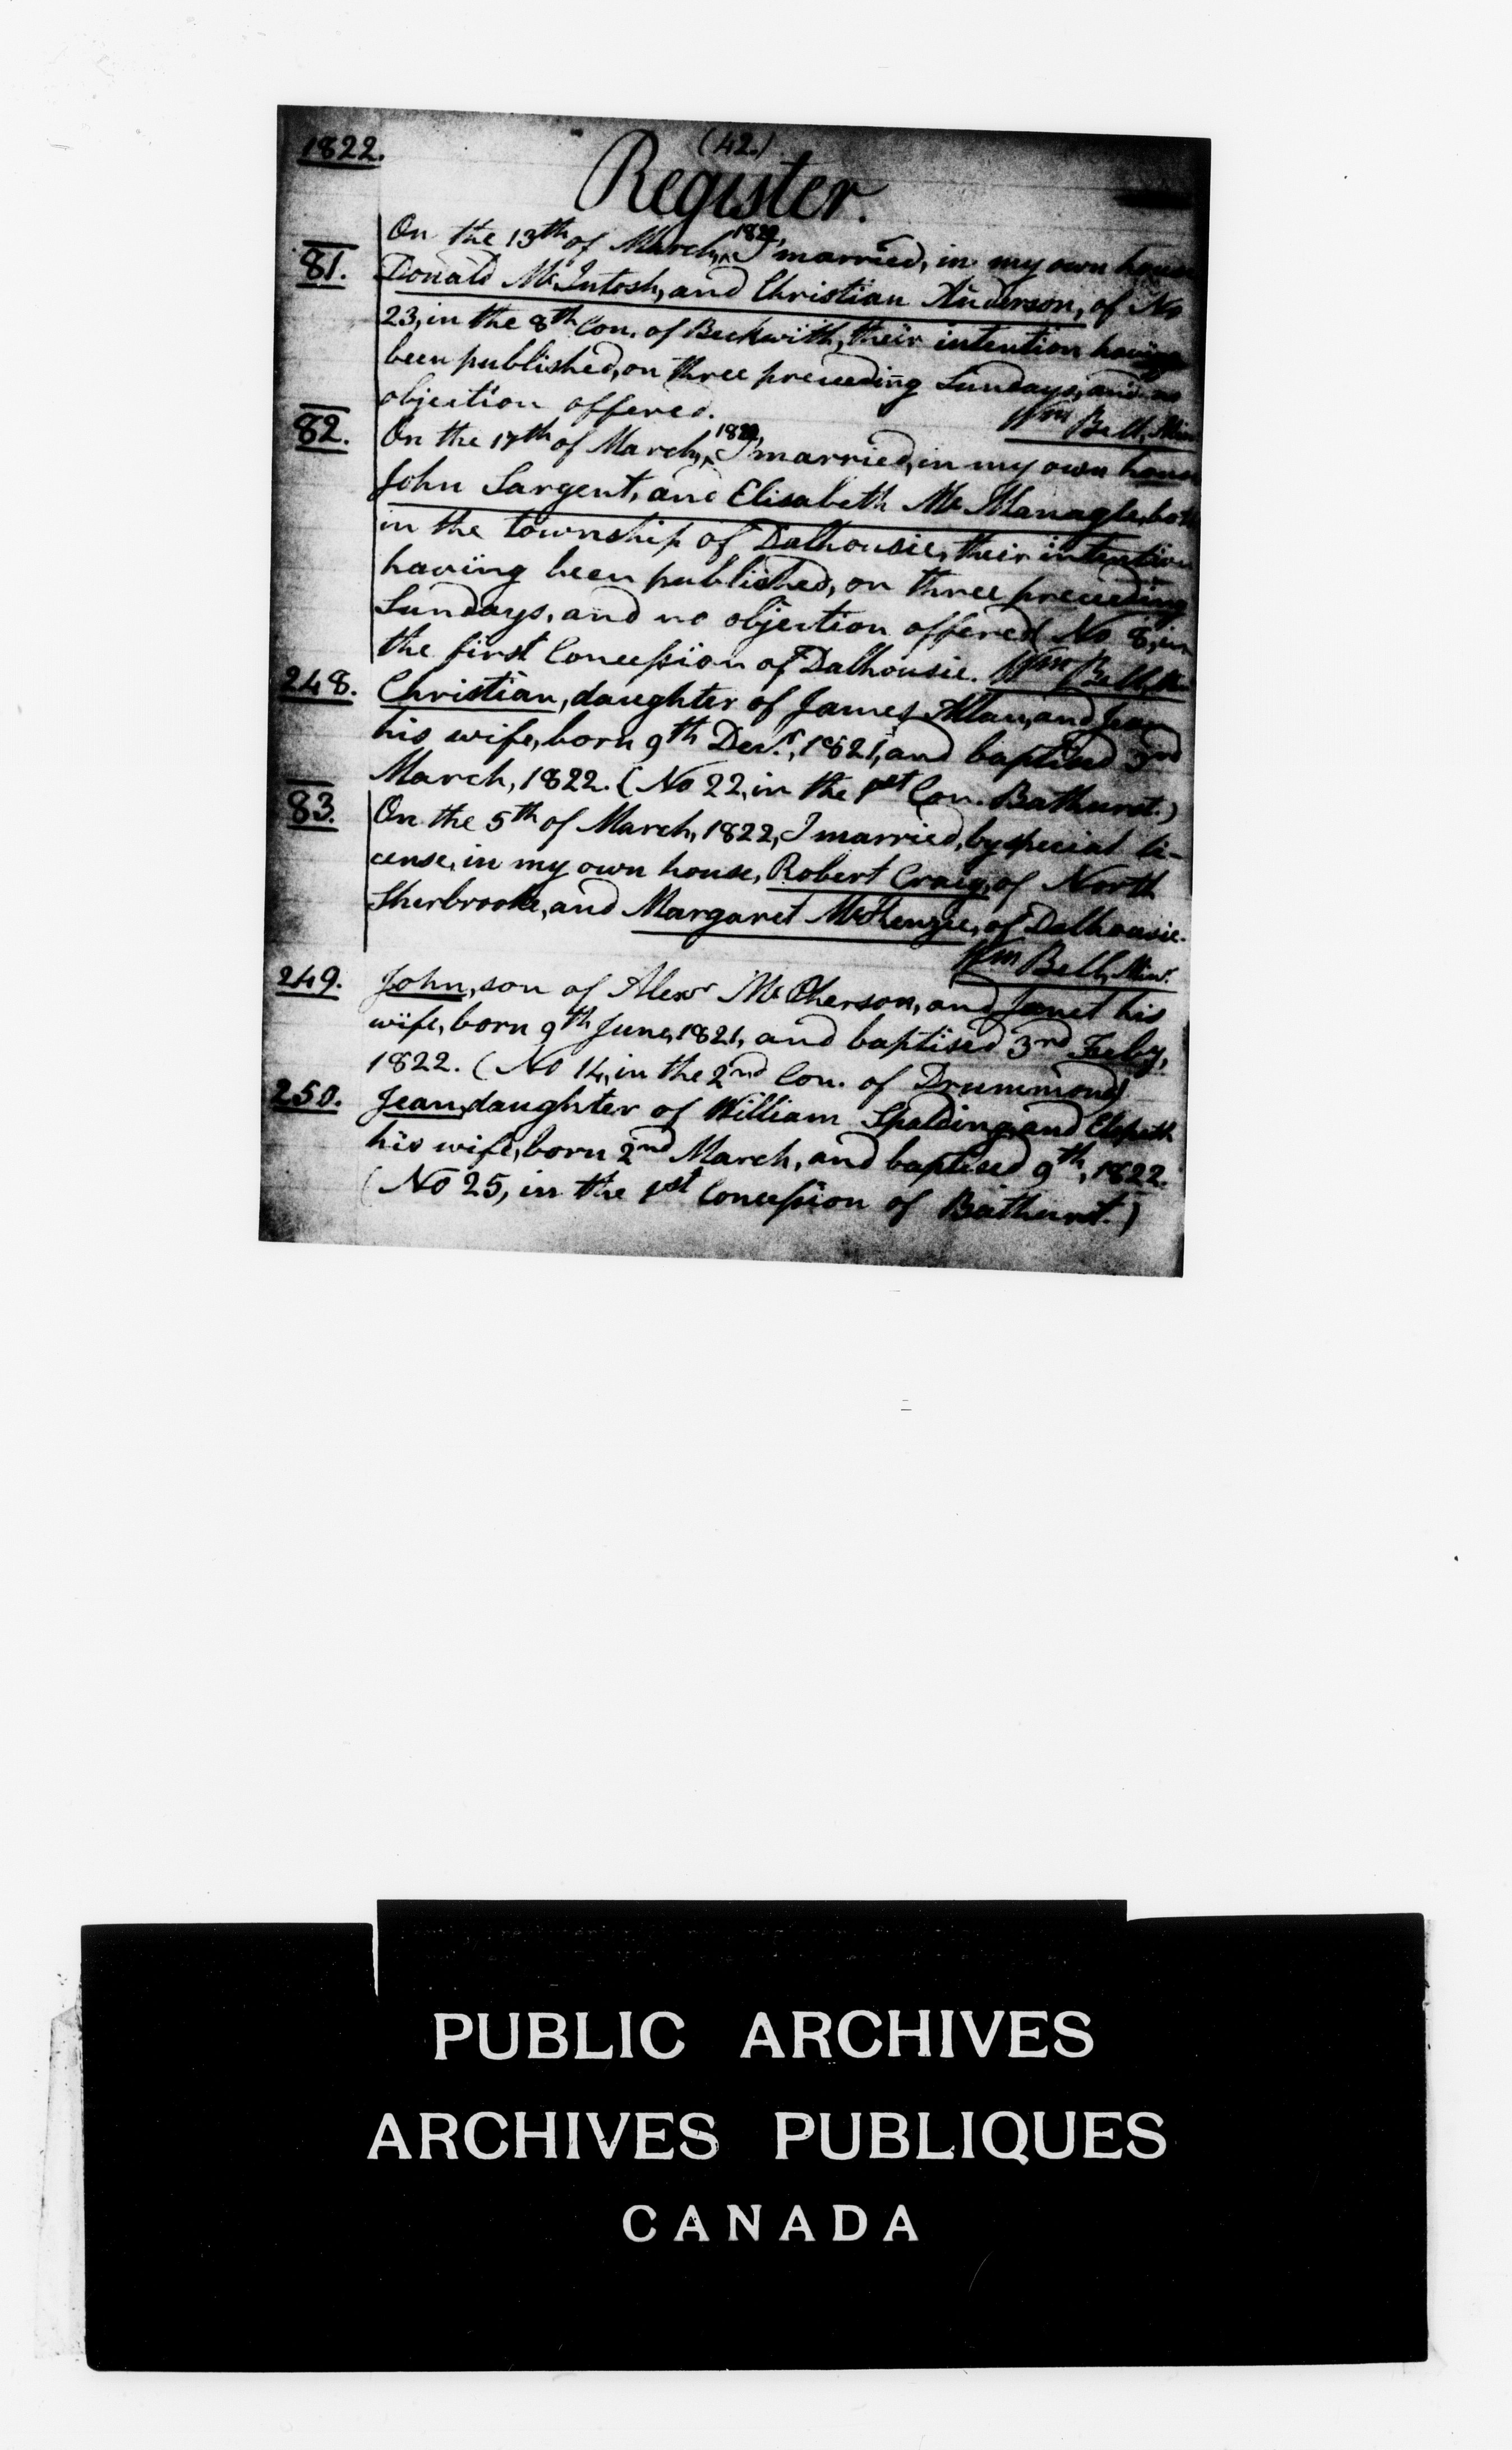 1822.
(42.)
Register.
81. On the 13th of March, 1822, I married, in my own house
Donald McIntosh, and Christian Anderson, of No
23, in the 8th Con. of Beckwith, their intention having
been published, on three preceeding Sundays, and no
objection offered. Wm Bell, Min
82. On the 17th of March, 1822, I married, in my own house
John Sargent, and Elisabeth McManagle, both
in the township of Dalhousie, their intention
having been published, on three preceeding
Sundays, and no objection offered No 8, in
the first Concession of Dalhousie. Wm Bell,
248. Christian, daughter of James Allan, and Jean
his wife, born 9th Decr., 1821, and baptised 3rd
March, 1822. (No 22, in the 1st Con. Bathurst.)
83. On the 5th of March, 1822, I married, by special li-
cense, in my own house, Robert Craig, of North
Sherbrooke, and Margaret McKenzie, of Dalhousie.
Wm Bell, Minr.
249. John, son of Alexr McPherson, and Janet his
wife, born 9th June, 1821, and baptised 3rd Feby,
1822. (No 14, in the 2nd Con. of Drummond)
250. Jean, daughter of William Spalding, and Elspeth
his wife, born 2nd March, and baptised 9th, 1822.
(No 25, in the 1st Concession of Bathurst.)
PUBLIC ARCHIVES
ARCHIVES PUBLIQUES
CANADA